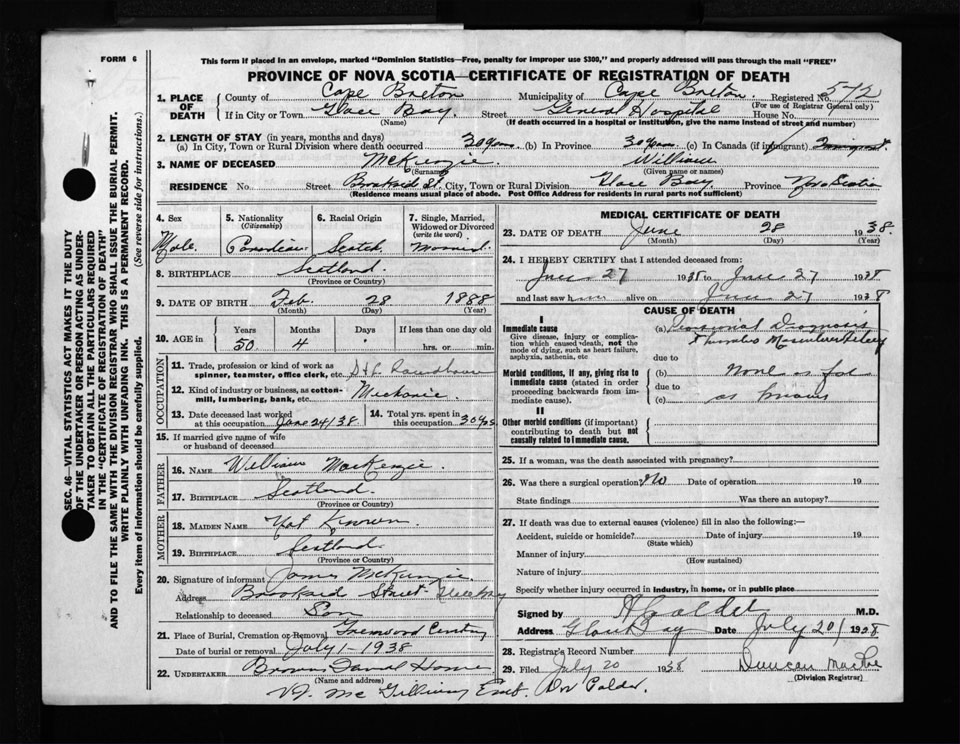 FORM 6
This form if placed in an envelope, marked "Dominion Statistics—Free, penalty for improper use $300," and properly addressed will pass through the mail "FREE"
PROVINCE OF NOVA SCOTIA—CERTIFICATE OF REGISTRATION OF DEATH
SEC. 46—VITAL STATISTICS ACT MAKES IT THE DUTY
OF THE UNDERTAKER OR PERSON ACTING AS UNDER-
TAKER TO OBTAIN ALL THE PARTICULARS REQUIRED
IN THE "CERTIFICATE OF REGISTRATION OF DEATH"
AND TO FILE THE SAME WITH THE DIVISION REGISTRAR WHO SHALL ISSUE THE BURIAL PERMIT.
WRITE PLAINLY WITH UNFADING INK. THIS IS A PERMANENT RECORD.
Every item of information should be carefully supplied. (See reverse side for instructions.)
1. PLACE OF DEATH County of Cape Breton Municipality of Cape Breton Registered No. 572
(For use of Registrar General only)
If in City or Town Glace Bay Street General Hospital House No.
(Name) (If death occurred in a hospital or institution, give the name instead of street and number)
2. LENGTH OF STAY (in years, months and days)
(a) In City, Town or Rural Division where death occurred 30 years (b) In Province 30 years (c) In Canada (if immigrant) Immigrant.
3. NAME OF DECEASED McKenzie William
(Surname) (Given name or names)
RESIDENCE No. Street Brookside St. City, Town or Rural Division Glace Bay Province Nova Scotia
(Residence means usual place of abode. Post Office Address for residents in rural parts not sufficient)
4. Sex Male
5. Nationality (Citizenship) Canadian
6. Racial Origin Scotch
7. Single, Married, Widowed or Divorced (write the word) Married
8. BIRTHPLACE Scotland
(Province or Country)
9. DATE OF BIRTH Feb. 28 1888
(Month) (Day) (Year)
10. AGE in Years 50 Months 4 Days If less than one day old hrs. or min.
OCCUPATION
11. Trade, profession or kind of work as spinner, teamster, office clerk, etc. Roundhouse
12. Kind of industry or business, as cotton-mill, lumbering, bank, etc. Mechanic.
13. Date deceased last worked at this occupation June 24/38
14. Total yrs. spent in this occupation 30 yrs
15. If married give name of wife or husband of deceased
FATHER
16. NAME William MacKenzie
17. BIRTHPLACE Scotland
(Province or Country)
MOTHER
18. MAIDEN NAME Not Known
19. BIRTHPLACE Scotland
(Province or Country)
20. Signature of informant James McKenzie
Address Brookside Street Glace Bay
Relationship to deceased Son
21. Place of Burial, Cremation or Removal Greenwood Cemetery
Date of burial or removal July 1-1938
22. UNDERTAKER Browns Funeral Home
(Name and address)
McGillivray Emb. Dr Calder.
MEDICAL CERTIFICATE OF DEATH
23. DATE OF DEATH June 28 1938.
(Month) (Day) (Year)
24. I HEREBY CERTIFY that I attended deceased from:
June 27 1938 to June 27 1938
and last saw him alive on June 27 1938
CAUSE OF DEATH
I
Immediate cause
Give disease, injury or complication which caused death, not the mode of dying, such as heart failure, asphyxia, asthenia, etc
(a) Provisional Diagnosis
due to
Morbid conditions, if any, giving rise to immediate cause (stated in order proceeding backwards from immediate cause).
(b) None as far
due to
(c) as known
II
Other morbid conditions (if important) contributing to death but not causally related to immediate cause.
25. If a woman, was the death associated with pregnancy?
26. Was there a surgical operation? No Date of operation 19
State findings Was there an autopsy?
27. If death was due to external causes (violence) fill in also the following:—
Accident, suicide or homicide? Date of injury 19
(State which)
Manner of injury
(How sustained)
Nature of injury
Specify whether injury occurred in industry, in home, or in public place
Signed by Calder M.D.
Address Glace Bay Date July 20/ 1938
28. Registrar's Record Number
29. Filed July 20 1938 Duncan MacRae
(Division Registrar)